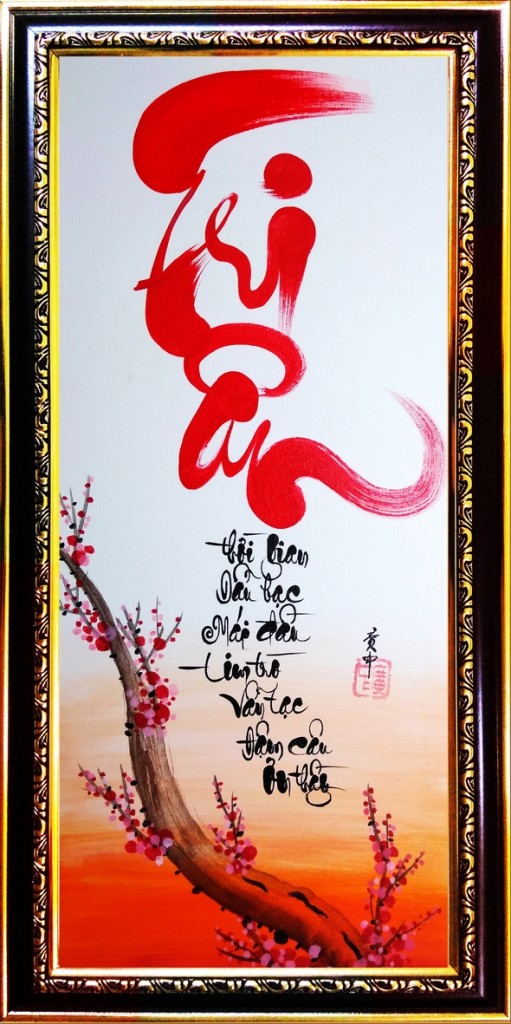 Tri
Ân
thời gian
Dẫu bạc
Mái đầu
Tim trò
Vẫn tạc
Đậm câu
Ơn thầy